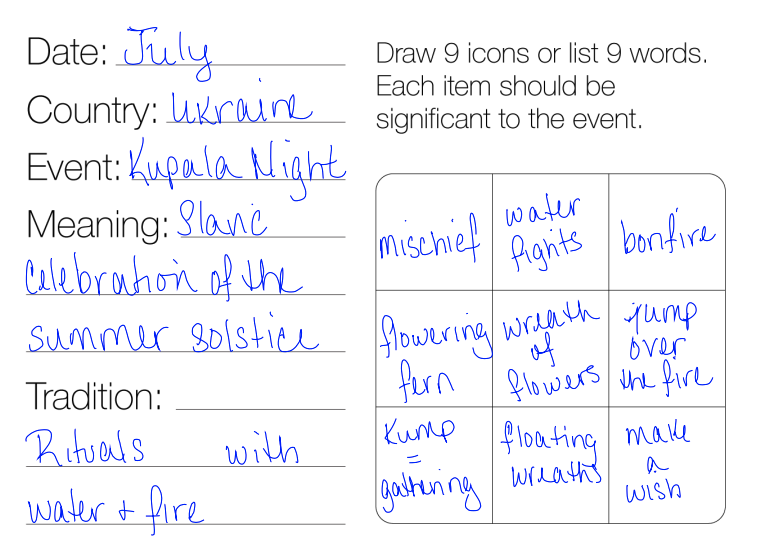 Date: July
Country: Ukraine
Event: Kupala Night
Meaning: Slavic
celebration of the
summer solstice
Tradition:
Rituals with
water + fire
Draw 9 icons or list 9 words.
Each item should be
significant to the event.
mischief
water
fights
bonfire
flowering
fern
wreath
of
flowers
jump
over
the fire
Kump
=
gathering
floating
wreaths
make
a
wish